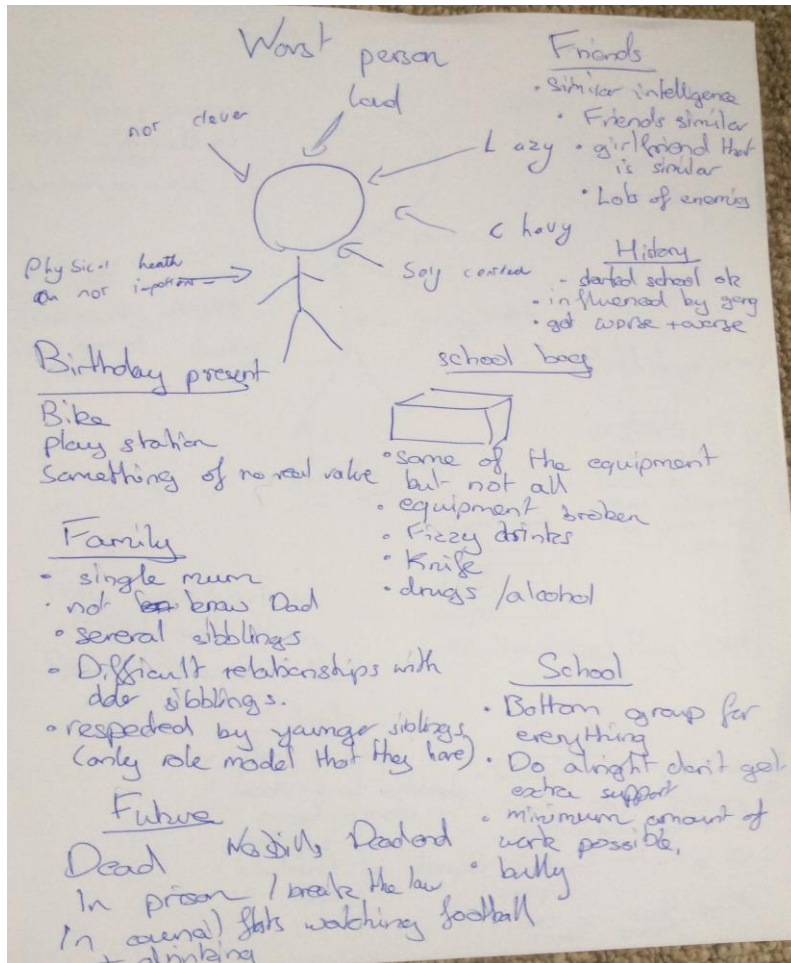 Worst person
loud
not clever
Lazy
Chavy
physical heath
not
Friends
• Similar intelligence
• Friends similar
• girlfriend that
is similar
• Lots of enemies
History
- started school ok
• influenced by gang
• got worse + worse
Birthday present
Bike
play station
Something of no real value
school bag
• some of the equipment
but not all
• equipment broken
• Fizzy drinks
• Knife
• drugs / alcohol
Family
• single mum
• not know Dad
• several sibblings
• Difficult relationships with
older sibblings.
• respected by younger siblings
(only role model that they have)
School
• Bottom group for
everything
• Do alright don't get
extra support
• minimum amount of
work possible,
• bully
Future
Dead No Deadend
In prison / break the law
In council flats watching football
+ drinking